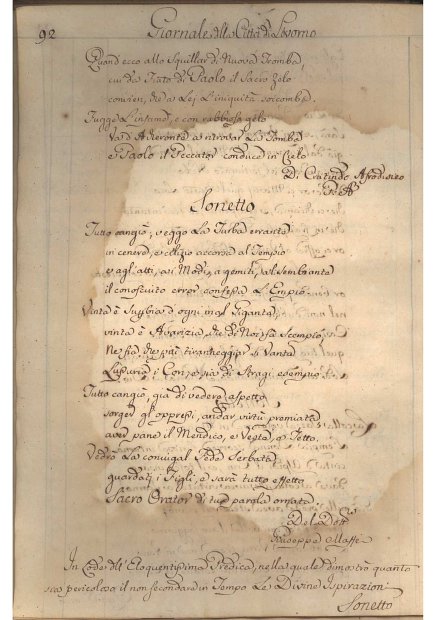 92 Giornale della Città di Livorno
Quand' ecco allo Squillar di Nuova Tromba
cui dà fiato di Paolo il Sacro Zelo
convien, che a Lei l'iniquità soccomba.
Fugge L'infame, e con rabbioso gelo
Va d'Acheronte a ritrovar La Tomba
e Paolo il Peccator conduce in Cielo
Di Afrodiseo
P. A.
Sonetto
Tutto cangiò; veggo La Turba errante
in cenere, e cilizio accorsa al Tempio
e agl'atti, ai Modi, a gemiti, al Sembiante
il conosciuto error confessa L'Empio.
Vinta è Superbia d'ogni mal Gigante,
vinta è Avarizia, che di Noi fa Scempio
Nè fia che più tiranneggiar si Vanta
Lussuria i Cori, e sia di Stragi esempio.
Tutto cangiò, già di vedere aspetto
sorger gl'oppressi, andar virtù premiata
aver pane il Mendico, e Veste, e Tetto.
Vedrò La coniugal Fede Serbata
guardati i Figli, e sarà tutto effetto
Sacro Orator di tua parola ornata.
Del Dott.
Giuseppe Maffei
In Lode dell' Eloquentissima Predica, nella quale dimostrò quanto
sia pericoloso il non secondare in Tempo Le Divine Ispirazioni
Sonetto